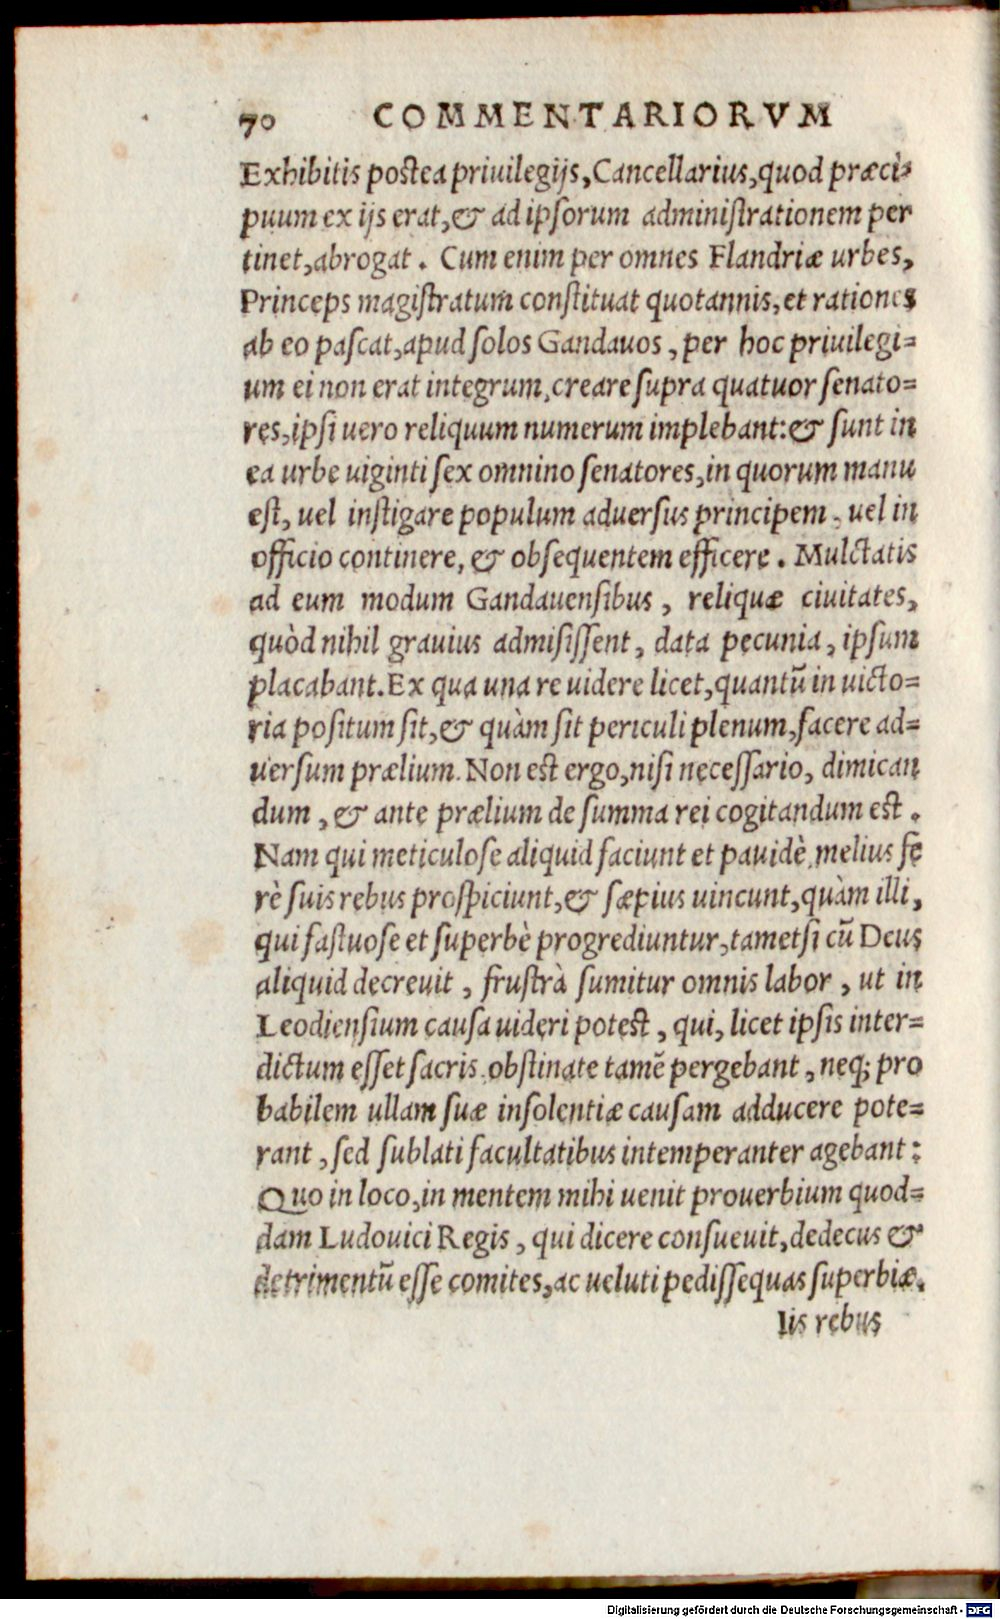 70 COMMENTARIORVM
Exhibitis postea priuilegijs, Cancellarius, quod præci-
puum ex ijs erat, & ad ipsorum administrationem per
tinet, abrogat. Cum enim per omnes Flandriæ urbes,
Princeps magistratum constituat quotannis, et rationes
ab eo pascat, apud solos Gandauos, per hoc priuilegi=
um ei non erat integrum, creare supra quatuor senato=
res, ipsi uero reliquum numerum implebant: & sunt in
ea urbe uiginti sex omnino senatores, in quorum manu
est, uel instigare populum aduersus principem, uel in
officio continere, & obsequentem efficere. Mulctatis
ad eum modum Gandauensibus, reliquæ ciuitates,
quòd nihil grauius admisissent, data pecunia, ipsum
placabant. Ex qua una re uidere licet, quantū in uicto=
ria positum sit, & quàm sit periculi plenum, facere ad=
uersum prælium. Non est ergo, nisi necessario, dimican
dum, & ante prælium de summa rei cogitandum est.
Nam qui meticulose aliquid faciunt et pauidè, melius fe
rè suis rebus prospiciunt, & sæpius uincunt, quàm illi,
qui fastuose et superbè progrediuntur, tametsi cū Deus
aliquid decreuit, frustrà sumitur omnis labor, ut in
Leodiensium causa uideri potest, qui, licet ipsis inter=
dictum esset sacris, obstinate tamē pergebant, neq; pro
babilem ullam suæ insolentiæ causam adducere pote=
rant, sed sublati facultatibus intemperanter agebant:
Quo in loco, in mentem mihi uenit prouerbium quod=
dam Ludouici Regis, qui dicere consueuit, dedecus &
detrimentū esse comites, ac ueluti pedissequas superbiæ.
Iis rebus
Digitalisierung gefördert durch die Deutsche Forschungsgemeinschaft - DFG